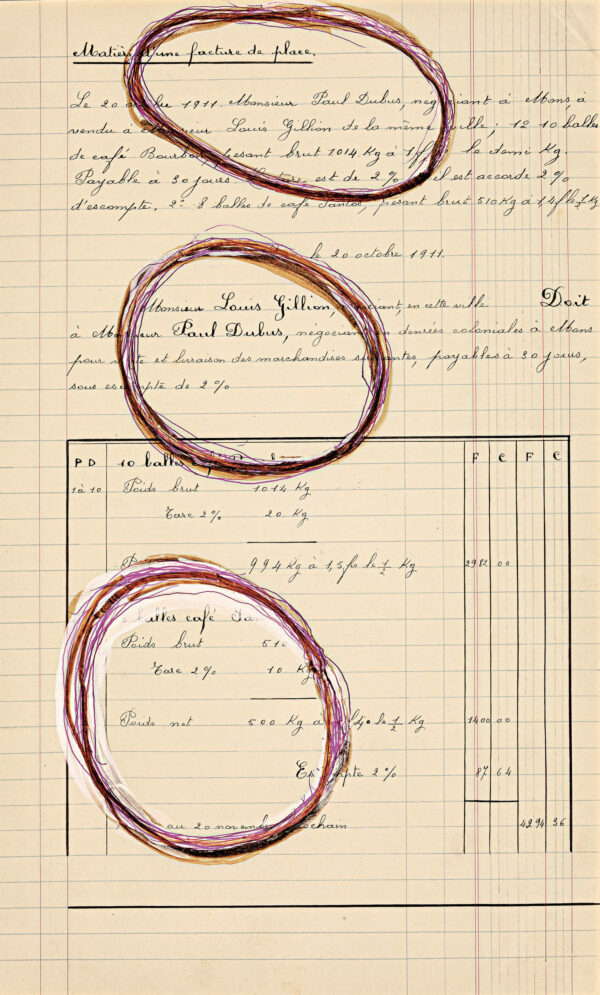 Matière d'une facture de place.
Le 20 octobre 1911 Monsieur Paul Dubus, négociant à Mons, à
vendu à Monsieur Louis Gillion de la même ville; 12 10 balles
de café Bourbon, pesant brut 1014 Kg à 1 le demi Kg.
Payable à 30 jours. est de 2% il est accordé 2%
d'escompte. 2º 8 balles de café Santos, pesant brut 510 Kg à 1,4 f le ½ Kg
le 20 octobre 1911.
Monsieur Louis Gillion, négociant, en cette ville Doit
à Monsieur Paul Dubus, négociant en denrées coloniales à Mons
pour vente et livraison des marchandises suivantes, payables à 30 jours,
sous escompte de 2%
P D 10 balles F C F C
1 à 10 Poids brut 1014 Kg
Tare 2% 20 Kg
994 Kg à 1,5 fr le ½ Kg 2982 00
balles café
Poids brut 510
Tare 2% 10 Kg
Poids net 500 Kg à le ½ Kg 1400 00
Escompte 2% 87 64
au 20 novembre prochain 4294 36